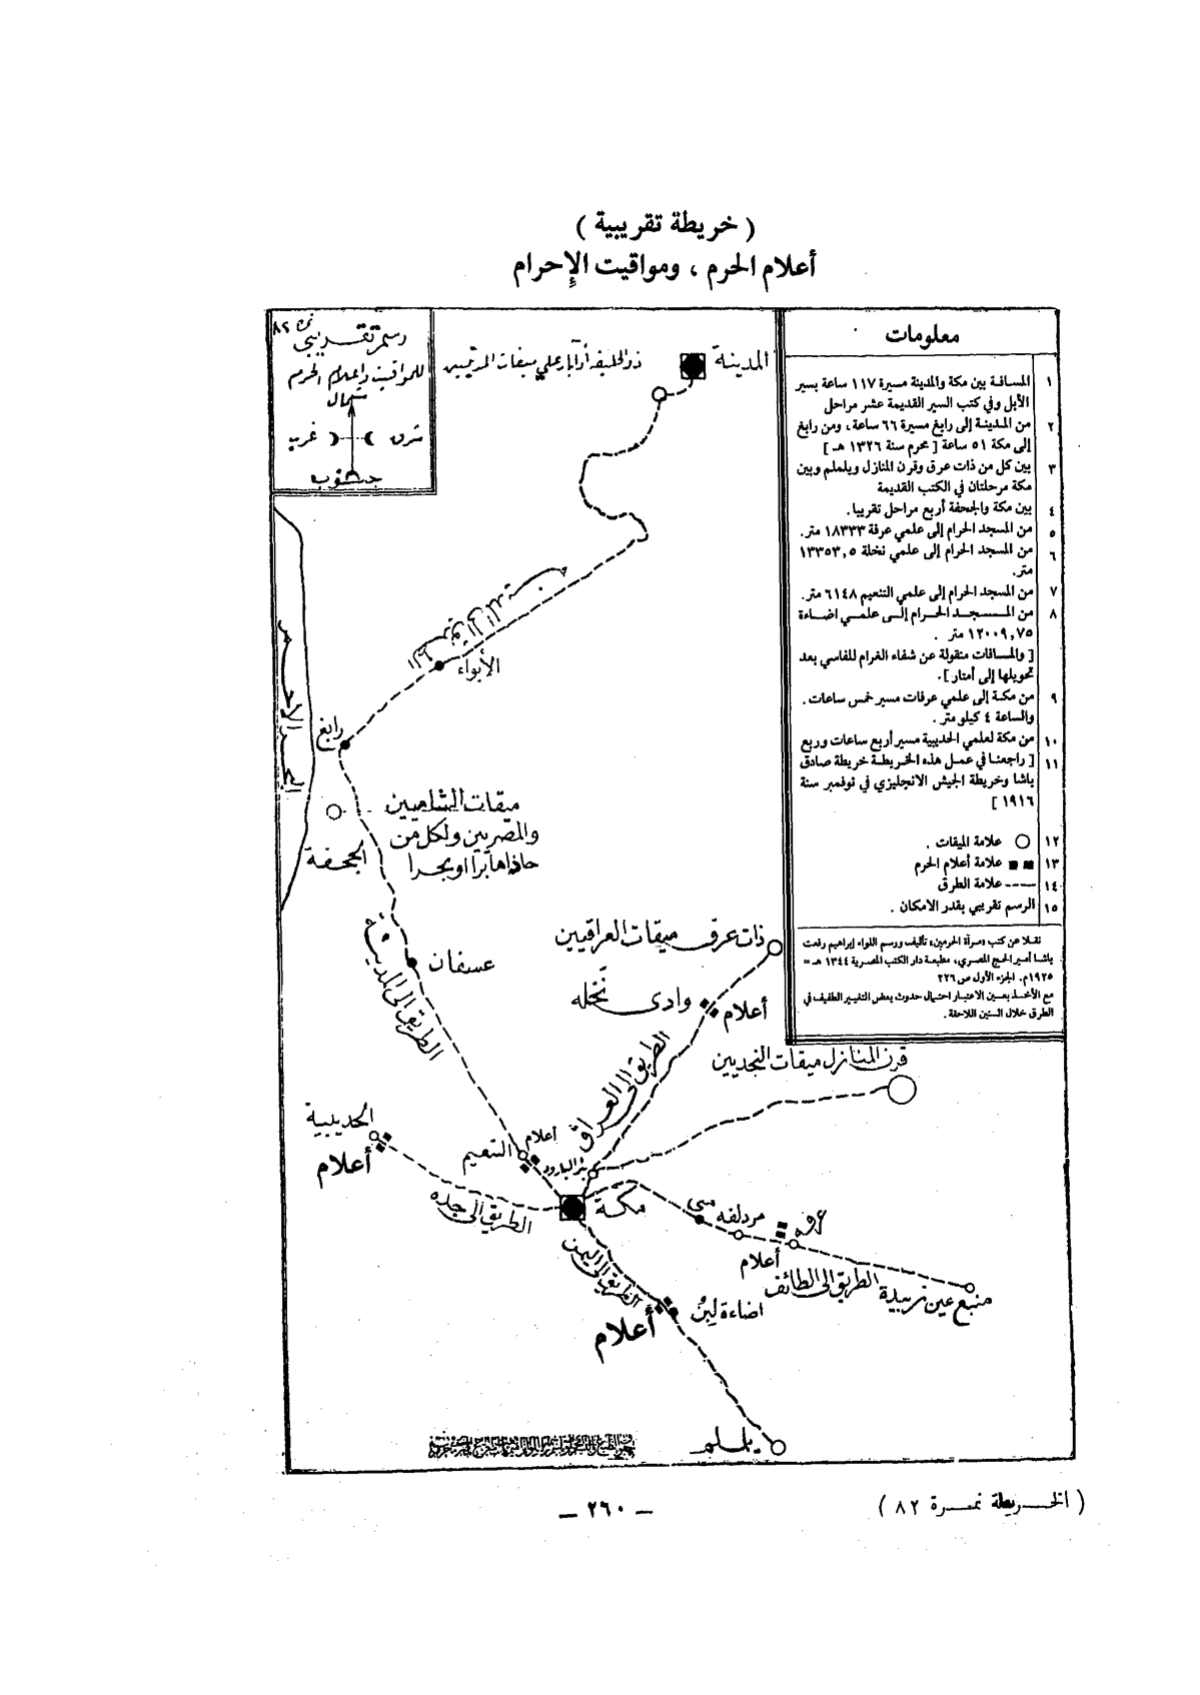 ( خريطة تقريبية )
أعلام الحرم ، ومواقيت الإِحرام
معلومات
١ المسافة بين مكة والمدينة مسيرة ١١٧ ساعة بسير
الأبل وفي كتب السير القديمة عشر مراحل
٢ من المدينة إلى رابغ مسيرة ٦٦ ساعة ، ومن رابغ
إلى مكة ٥١ ساعة [ محرم سنة ١٣٢٦ هـ ]
٣ بين كل من ذات عرق وقرن المنازل ويلملم وبين
مكة مرحلتان في الكتب القديمة
٤ بين مكة والجحفة أربع مراحل تقريبا .
٥ من المسجد الحرام إلى علمي عرفة ١٨٣٣٣ متر .
٦ من المسجد الحرام إلى علمي نخلة ١٣٣٥٣,٥
متر .
٧ من المسجد الحرام إلى علمي التنعيم ٦١٤٨ متر .
٨ من المسجد الحرام إلى علمي اضاءة
١٢٠٠٩,٧٥ متر .
[ والمسافات منقولة عن شفاء الغرام للفاسي بعد
تحويلها إلى أمتار ] .
٩ من مكة إلى علمي عرفات مسير خمس ساعات .
والساعة ٤ كيلو متر .
١٠ من مكة لعلمي الحديبية مسير أربع ساعات وربع
١١ [ راجعنا في عمل هذه الخريطة خريطة صادق
باشا وخريطة الجيش الانجليزي في نوفمبر سنة
١٩١٦ ]
١٢ علامة الميقات .
١٣ علامة أعلام الحرم
١٤ علامة الطرق
١٥ الرسم تقريبي بقدر الامكان .
نقلا عن كتب «مرآة الحرمين» تأليف ورسم اللواء إبراهيم رفعت
باشا أمير الحج المصري ، مطبعة دار الكتب المصرية ١٣٤٤ هـ =
١٩٢٥م . الجزء الأول ص ٢٢٦
مع الأخذ بعين الاعتبار احتمال حدوث بعض التغيير الطفيف في
الطرق خلال السنين اللاحقة .
نمرة ٨٢
رسم تقريبي
للمواقيت واعلام الحرم
شمال
شرق غرب
جنوب
المدينة
ذو الحليفه أو آبار علي ميقات المدنيين
الأبواء
رابغ
البحر الأحمر
ميقات الشاميين
والمصريين ولكل من
حاذاها برا او بحرا
الجحفة
عسفان
الطريق الى المدينة
ذات عرق ميقات العراقيين
وادى نخله
أعلام
الطريق الى العراق
قرن المنازل ميقات النجديين
الحديبية
أعلام
التنعيم
أعلام
بئر البارود
الطريق الى جده
مكة
منى
مزدلفه
عرفه
أعلام
الطريق الى الطائف
منبع عين زبيدة
الطريق الى اليمن
اضاءة لبن
أعلام
يلملم
( الخريطة نمرة ٨٢ )
— ٢٦٠ —